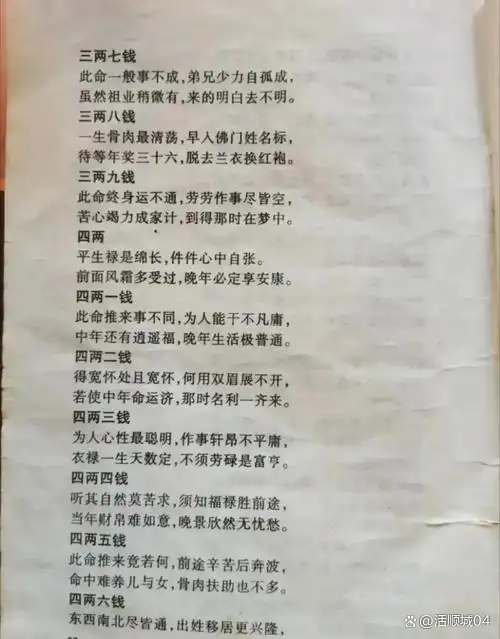 三两七钱
此命一般事不成,弟兄少力自孤成,
虽然祖业稍微有,来的明白去不明。
三两八钱
一生骨肉最清荡,早入佛门姓名标,
待等年奖三十六,脱去兰衣换红袍。
三两九钱
此命终身运不通,劳劳作事尽皆空,
苦心竭力成家计,到得那时在梦中。
四两
平生禄是绵长,件件心中自张。
前面风霜多受过,晚年必定享安康。
四两一钱
此命推来事不同,为人能干不凡庸,
中年还有逍遥福,晚年生活极普通。
四两二钱
得宽怀处且宽怀,何用双眉展不开,
若使中年命运济,那时名利一齐来。
四两三钱
为人心性最聪明,作事轩昂不平庸,
衣禄一生天数定,不须劳碌是富亨。
四两四钱
听其自然莫苦求,须知福禄胜前途,
当年财帛难如意,晚景欣然无忧愁。
四两五钱
此命推来竟若何,前途辛苦后奔波,
命中难养儿与女,骨肉扶助也不多。
四两六钱
东西南北尽皆通,出姓移居更兴隆,
@活顺城04